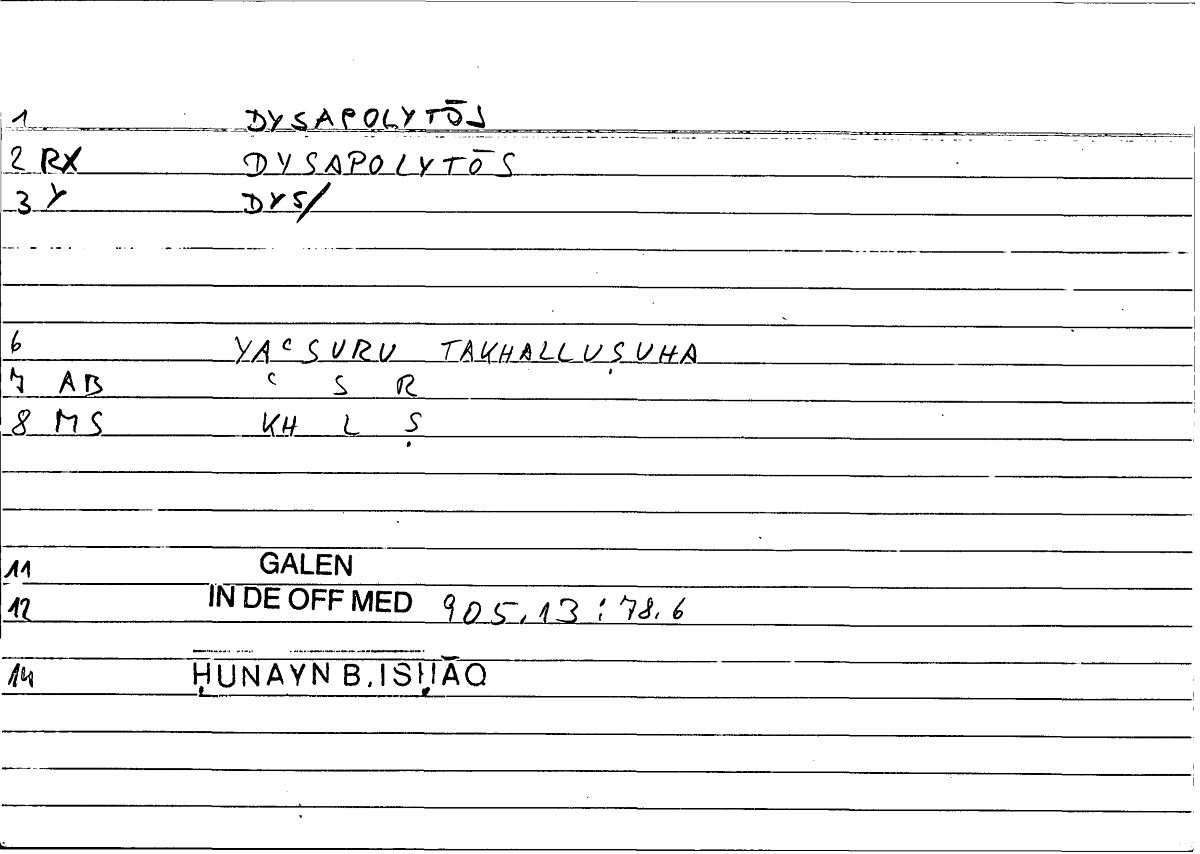 1 DYSAPOLYTŌS
2 RX DYSAPOLYTŌS
3 Y DYS/
6 YAʿSURU TAKHALLUṢUHA
7 AB ʿ S R
8 MS KH L Ṣ
11 GALEN
12 IN DE OFF MED 905.13 : 78.6
14 ḤUNAYN B. ISḤĀQ